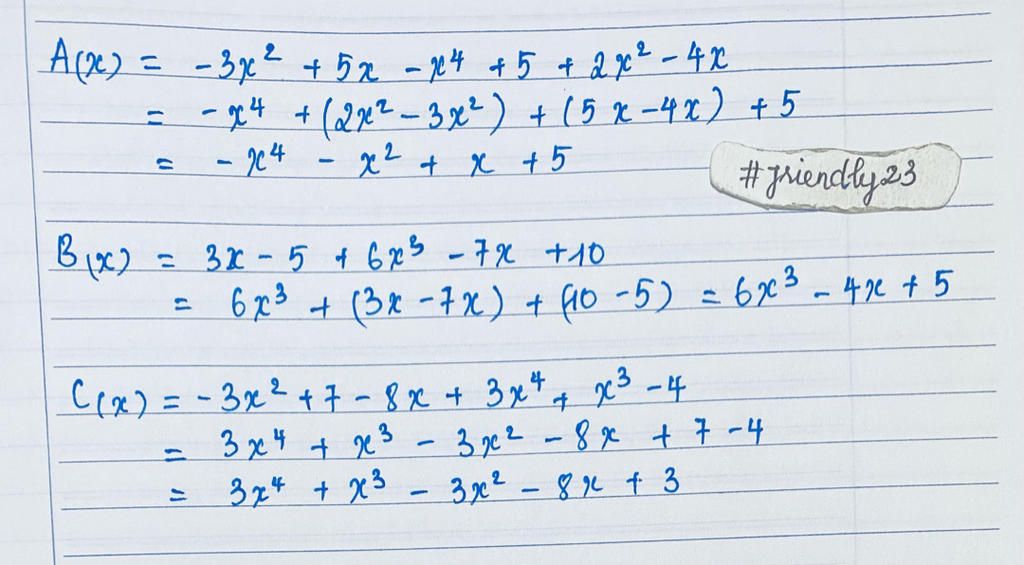 A(x) = -3x² + 5x - x⁴ + 5 + 2x² - 4x
= -x⁴ + (2x² - 3x²) + (5x - 4x) + 5
= -x⁴ - x² + x + 5
#friendly23
B(x) = 3x - 5 + 6x³ - 7x + 10
= 6x³ + (3x - 7x) + (10 - 5) = 6x³ - 4x + 5
C(x) = -3x² + 7 - 8x + 3x⁴ + x³ - 4
= 3x⁴ + x³ - 3x² - 8x + 7 - 4
= 3x⁴ + x³ - 3x² - 8x + 3